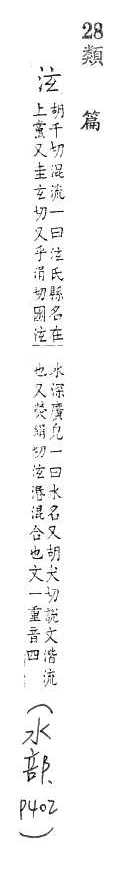 28
類篇
泫
胡千切混流一曰泫氏縣名在
上黨又圭玄切又乎涓切囦泫
水深廣皃一曰水名又胡犬切說文湝流
也又熒絹切泫湣混合也文一重音四
(水部、P402)